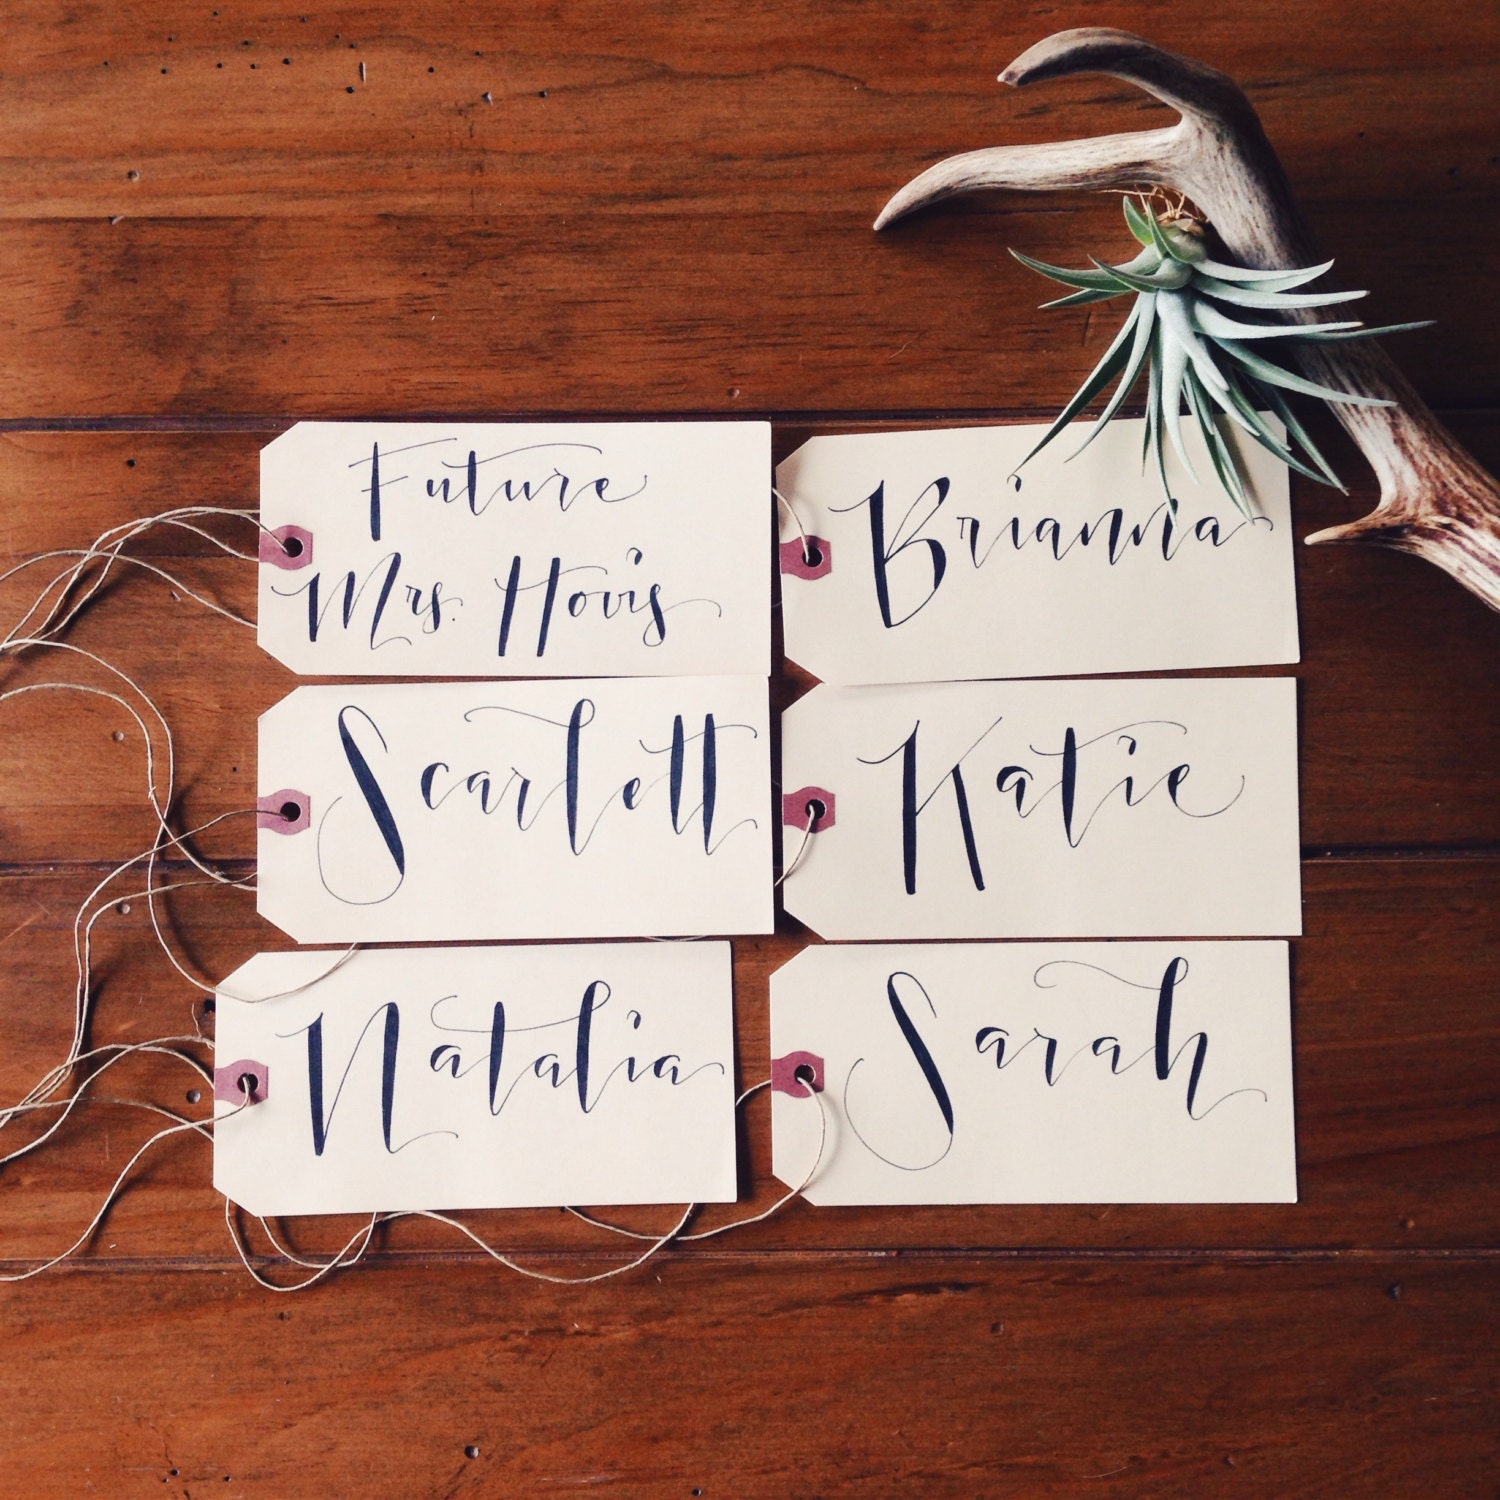 Future
Mrs. Hovis
Brianna
Scarlett
Katie
Natalia
Sarah